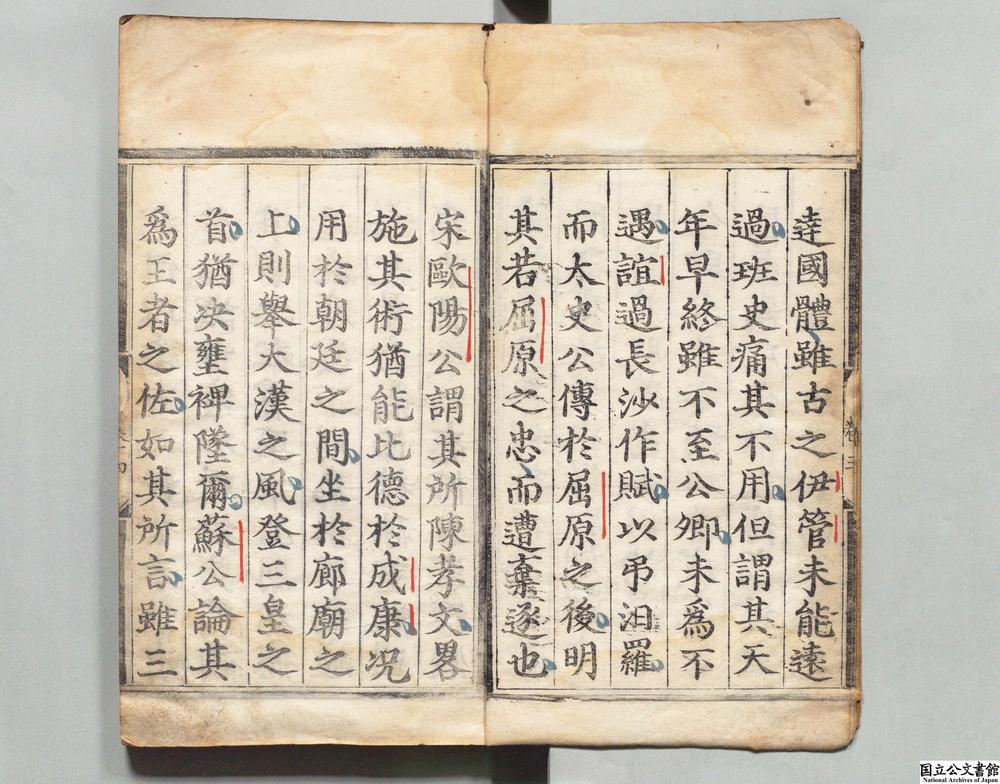 達國體雖古之伊管未能遠
過班史痛其不用但謂其天
年早終雖不至公卿未爲不
遇誼過長沙作賦以弔汨羅
而太史公傳於屈原之後明
其若屈原之忠而遭棄逐也
宋歐陽公謂其所陳孝文畧
施其術猶能比德於成康况
用於朝廷之間坐於廊廟之
上則舉大漢之風登三皇之
首猶决壅裨墜爾蘇公論其
爲王者之佐如其所言雖三
国立公文書館
National Archives of Japan